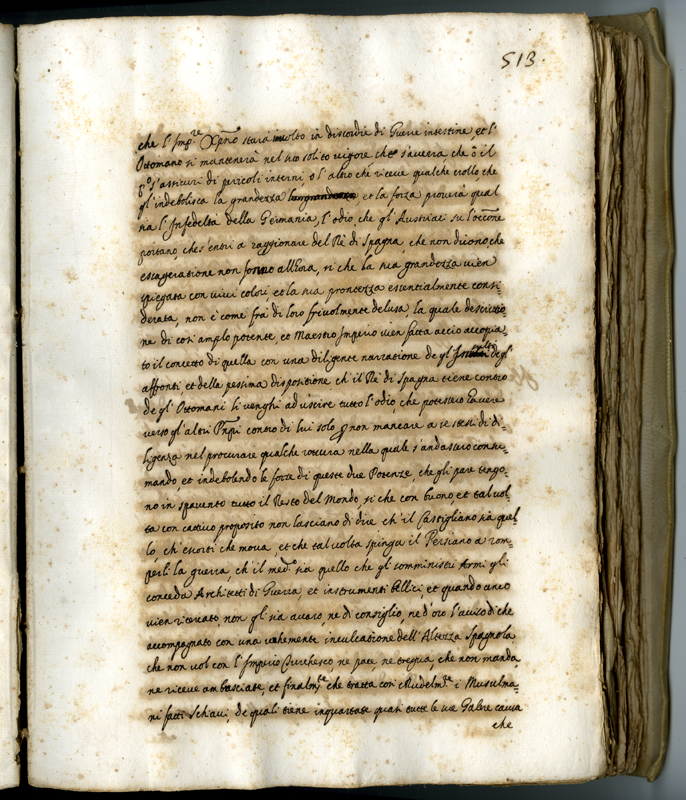 513.
che l'Imp.re Xpno starà involto in discordie di Guerre intestine, et l'
Ottomano si mantenerà nel suo solito vigore che s'avvera che ò il
p.o s'assicuri di pericoli interni, o l'altro che riceve qualche crollo che
gl'indebolisca la grandezza et la forza proverà qual
sia l'Infedeltà della Germania, l'odio, che gl'Austriaci su l'occone
portano, che s'entri a raggionare del Rè di Spagna, che non dicono, che
escageratione non forno all'Hora, si che la sua grandezza vien
spiegata con vivi colori, et la sua prontezza essentialmente consi
derata, non è come fra di loro frivolmente delusa, la quale descritio
ne di così amplo potente, et Maestro Imperio vien fatta accio accopia
to il concetto di quella con una diligente narratione de gl' degl'
affronti et della pessima dispositione ch'il Rè di Spagna tiene contro
de gl'Ottomani li venghi ad uscire tutto l'odio, che potessero havere
verso gl'altri Pnpi contro di lui solo p non mancare a se stessi di di-
ligenza nel procurare qualche rottura nella quale s'andassero consu-
mando et indebolendo le forze di queste due Potenze, che gli pare tengo-
no in spavento tutto il Resto del Mondo, si che con buono et tal vol
ta con cattivo proposito non lasciano di dire ch'il Castigliano sia quel
lo, ch'essorti che mova, et che tal volta spinga il Persiano a rom-
perli la guerra, ch'il med.o sia quello che gl'somministri Armi gli
conceda Architetti di Guerra, et instrumenti bellici et quando anco
vien ricercato, non gl'sia avaro, ne di consiglio, ne d'oro l'aviso di che
accompagnato con una vehemente inculcatione dell'Altezza Spagnola
che non vol con l'Imperio Turchesco ne pace, ne tregua, che non manda
ne riceve ambasciate, et finalm.te che tratta con crudelm.te i Musulma-
ni fatti Schiavi, de quali tiene inquartate quasi tutte le sue Galere causa
che